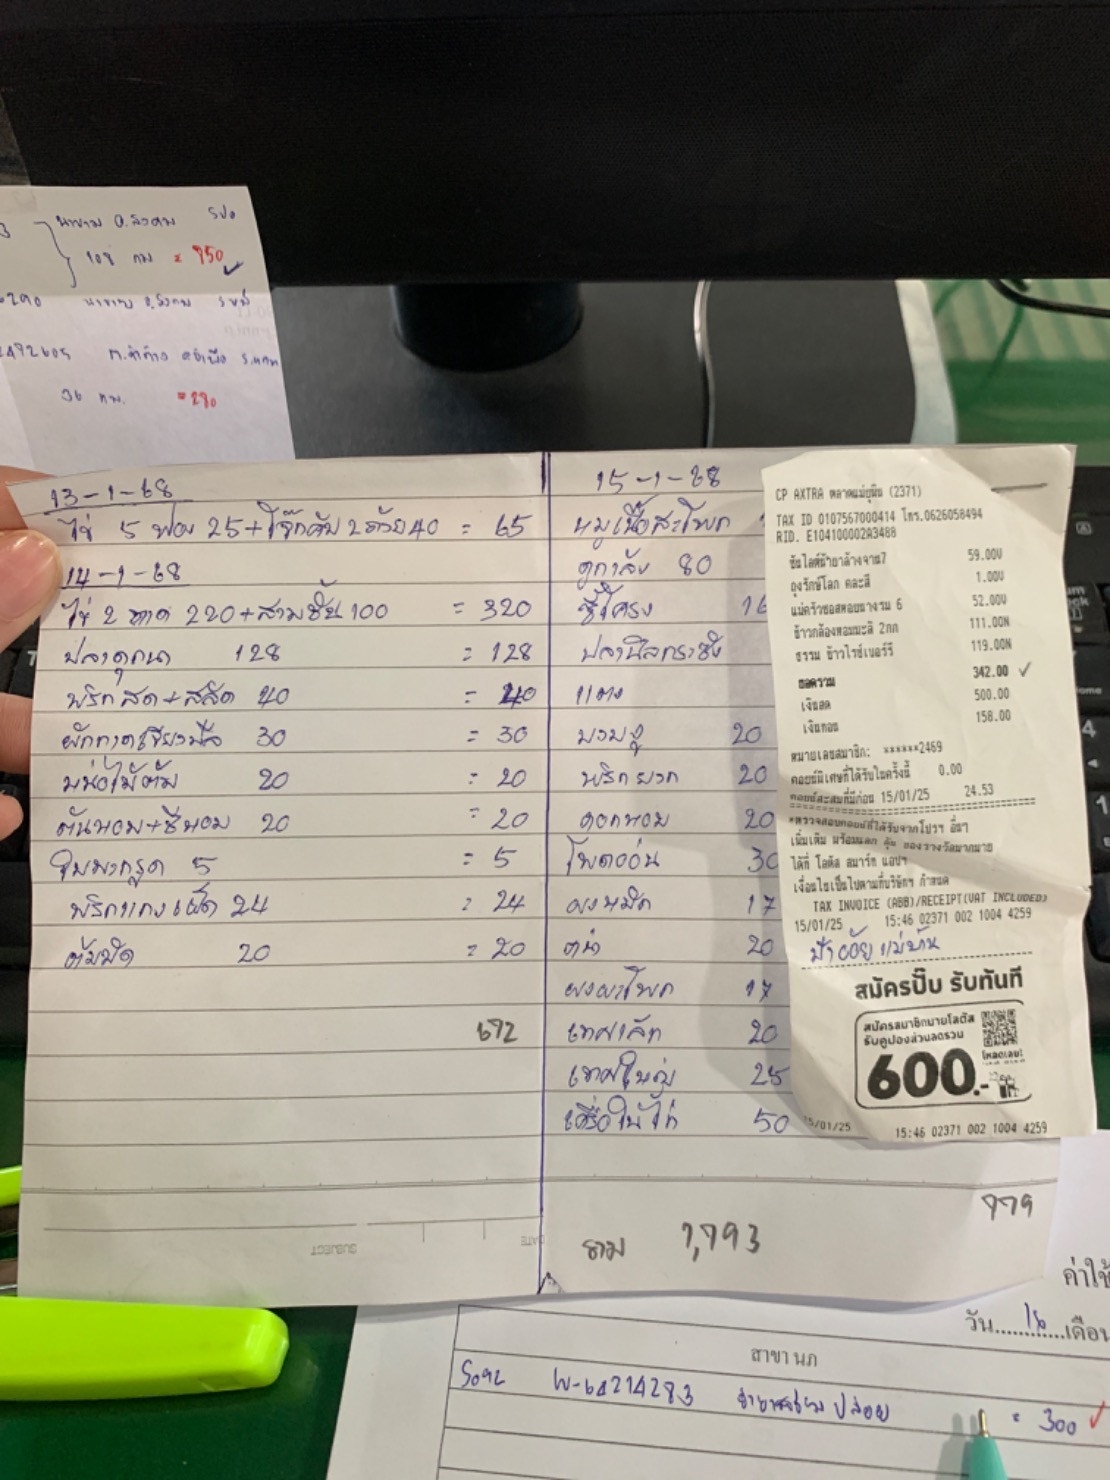 นาขาม อ.สงคม
108 กม = 950
36 กม.
13-1-68
ไข่ 5 ฟอง 25+โจ๊กคัพ 2 ถ้วย 40 = 65
14-1-68
ไข่ 2 ถาด 220+สามชั้น 100 = 320
ปลาดุกนา 128 = 128
พริกสด+สลัด 40 = 40
ผักกาดเขียวมือ 30 = 30
หน่อไม้ต้ม 20 = 20
ต้นหอม+ชีหอม 20 = 20
ใบมะกรูด 5 = 5
พริกแกงเผ็ด 24 = 24
20 = 20
672
15-1-68
หมูเนื้อสะโพก
80
ซี่โครง 16
ปลานิลกระชัง
แตง
บวบงู 20
พริกยวก 20
ดอกหอม 20
โพดอ่อน 30
ผงหมัก 17
20
17
20
25
50
รวม 1,793
779
CP AXTRA ตลาดแม่ยูมิน (2371)
TAX ID 0107567000414 โทร.0626058494
RID. E104100002A3488
ซันไลต์น้ำยาล้างจาน7 59.00V
ถุงรักษ์โลก คละสี 1.00V
แม่ครัวซอสหอยนางรม 6 52.00V
ข้าวกล้องหอมมะลิ 2กก 111.00N
ธรรม ข้าวไรซ์เบอร์รี 119.00N
ยอดรวม 342.00 ✓
เงินสด 500.00
เงินทอน 158.00
หมายเลขสมาชิก: ******2469
คอยน์พิเศษที่ได้รับในครั้งนี้ 0.00
คอยน์สะสมที่มีก่อน 15/01/25 24.53
*ตรวจสอบคอยน์ที่ได้รับจากโปรฯ อื่นๆ
เพิ่มเติม พร้อมแลก คุ้ม ของรางวัลมากมาย
ได้ที่ โลตัส สมาร์ท แอปฯ
เงื่อนไขเป็นไปตามที่บริษัทฯ กำหนด
TAX INVOICE (ABB)/RECEIPT(VAT INCLUDED)
15/01/25 15:46 02371 002 1004 4259
ป้าอ้อย แม่บ้าน
สมัครปั๊บ รับทันที
สมัครสมาชิกมายโลตัส
รับคูปองส่วนลดรวม
600.-
โหลดเลย!
15/01/25 15:46 02371 002 1004 4259
SUBJECT
DATE
ค่าใช้
วัน.........เดือน
สาขา นภ
= 300 ✓